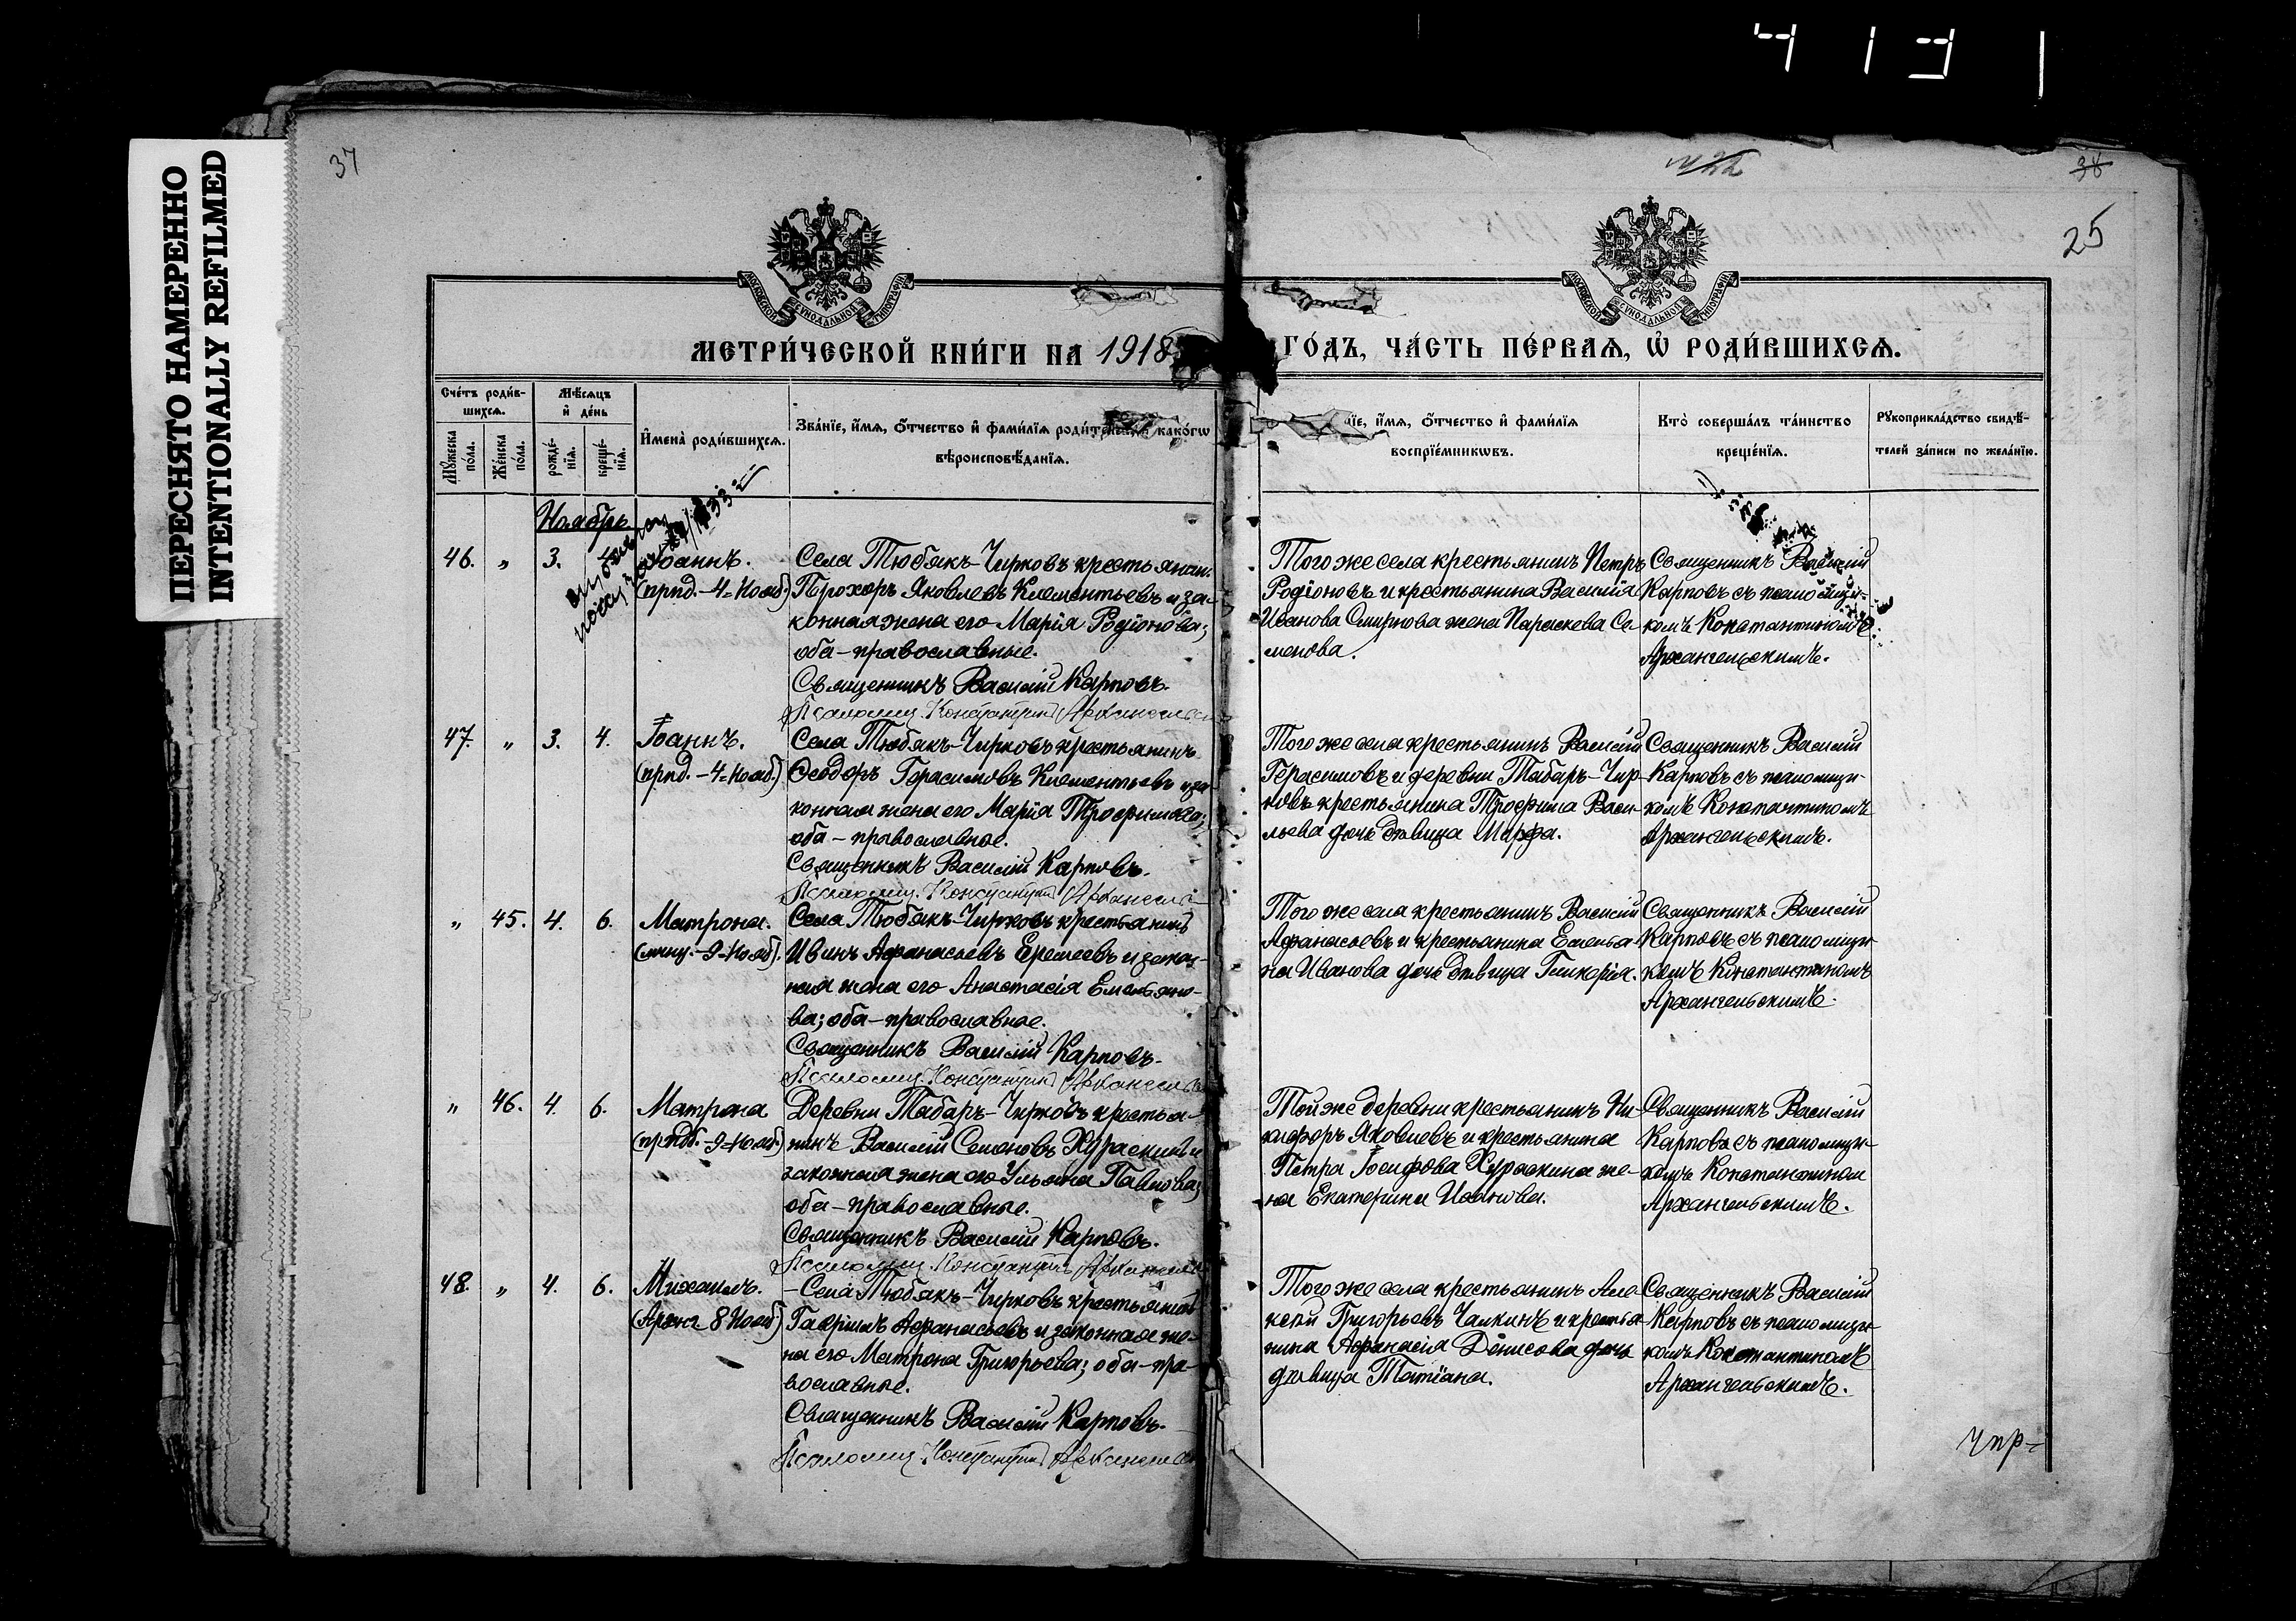 4191
ПЕРЕСНЯТО НАМЕРЕННО
INTENTIONALLY REFILMED
37
38
25
МОСКОВСКОЙ СУНОДАЛЬНОЙ ТИПОГРАФІИ
МОСКОВСКОЙ СУНОДАЛЬНОЙ ТИПОГРАФІИ
МЕТРИ́ЧЕСКОЙ КНИ́ГИ НА 1918
ГО́ДЪ, ЧА́СТЬ ПЕ́РВАЯ, Ѽ РОДИ́ВШИХСЯ.
Сче́тъ роди́в-
шихся.
Мѣ́сяцъ
и҆ де́нь
Мꙋ́жеска
по́ла.
Же́нска
по́ла.
рожде́-
нїя.
креще́-
нїя.
И҆мена̀ роди́вшихся.
Зва́нїе, и҆́мя, ѻ҆́тчество и҆ фами́лїя роди́телей како́гѡ
вѣроисповѣ́данїя.
їе, и҆́мя, ѻ҆́тчество и҆ фами́лїя
воспрїе́мникѡвъ.
Кто̀ соверша́лъ та́инство
креще́нїя.
Рꙋкоприкла́дство свидѣ́-
телей за́писи по жела́нїю.
Ноябрь
46. „ 3. 4. Іоаннъ.
(прпд. – 4 = Нояб.)
Села Тюбякъ-Чирковъ крестьянин.
Прохоръ Яковлевъ Клементьевъ и за-
конная жена его Марія Родіонова;
оба – православные.
Священникъ Василій Карповъ.
Псаломщ. Константинъ Архангельс
Того же села крестьянинъ Петръ
Родіоновъ и крестьянина Василія
Иванова Смирнова жена Параскева Се-
менова.
Священникъ Василій
Карповъ съ псаломщи-
комъ Константиномъ
Архангельскимъ.
47. „ 3. 4. Іоаннъ.
(прпд. – 4 = Нояб.)
Села Тюбякъ-Чирковъ крестьянинъ
Ѳеодоръ Герасимовъ Клементьевъ и за-
конная жена его Марія Трофимова;
оба – православные.
Священникъ Василій Карповъ.
Псаломщ. Константинъ Архангельс
Того же села крестьянинъ Василій
Герасимовъ и деревни Табаръ-Чир-
ковъ крестьянина Трофима Васи-
льева дочь дѣвица Марфа.
Священникъ Василій
Карповъ съ псаломщи-
комъ Константиномъ
Архангельскимъ.
„ 45. 4. 6. Матрона.
(мчнц. – 9 = Нояб).
Села Тюбякъ-Чирковъ крестьянинъ
Ивинъ Афанасьевъ Еремеевъ и закон-
ная жена его Анастасія Емельяно-
ва; оба – православные.
Священникъ Василій Карповъ.
Псаломщ. Константинъ Архангельс
Того же села крестьянинъ Василій
Афанасьевъ и крестьянина Емелья-
на Иванова дочь дѣвица Гликерія.
Священникъ Василій
Карповъ съ псаломщи-
комъ Константиномъ
Архангельскимъ.
„ 46. 4. 6. Матрона
(прпдб. – 9 = Нояб.)
Деревни Табаръ-Чирковъ крестья-
нинъ Василій Семеновъ Хураскинъ и
законная жена его Ульяна Павлова;
оба – православные.
Священникъ Василій Карповъ.
Псаломщ. Константинъ Архангельс
Той же деревни крестьянинъ Ни-
кифоръ Яковлевъ и крестьянина
Петра Іосифова Хураскина же-
на Екатерина Иванова.
Священникъ Василій
Карповъ съ псаломщи-
комъ Константином
Архангельскимъ.
48. „ 4. 6. Михаилъ.
(Архнг 8 Нояб)
– Села Тюбякъ-Чирковъ крестьянинъ
Гавріилъ Афанасьевъ и законная же-
на его Матрона Григорьева; оба – пра-
вославные.
Священникъ Василій Карповъ.
Псаломщ. Константинъ Архангельс
Того же села крестьянинъ Але-
ксей Григорьевъ Чалкинъ и крестья-
нина Афанасія Денисова дочь
дѣвица Татіана.
Священникъ Василій
Карповъ съ псаломщи-
комъ Константиномъ
Архангельскимъ.